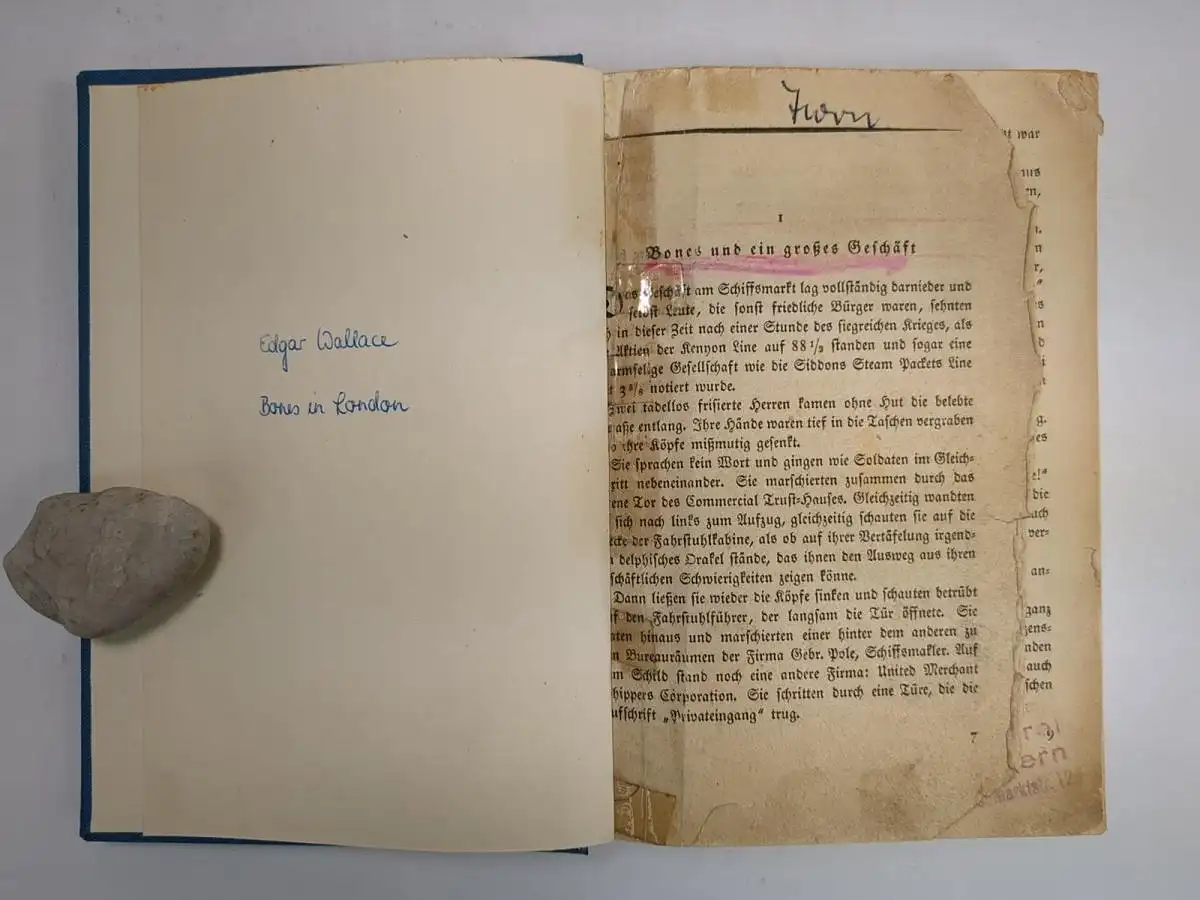 Edgar Wallace
Bones in London
1
Bones und ein großes Geschäft
am Schiffsmarkt lag vollständig darnieder und
selbst Leute, die sonst friedliche Bürger waren, sehnten
in dieser Zeit nach einer Stunde des siegreichen Krieges, als
Aktien der Kenyon Line auf 88 1/2 standen und sogar eine
armselige Gesellschaft wie die Siddons Steam Packets Line
notiert wurde.
Zwei tadellos frisierte Herren kamen ohne Hut die belebte
aße entlang. Ihre Hände waren tief in die Taschen vergraben
ihre Köpfe mißmutig gesenkt.
Sie sprachen kein Wort und gingen wie Soldaten im Gleich-
ritt nebeneinander. Sie marschierten zusammen durch das
ene Tor des Commercial Trust-Hauses. Gleichzeitig wandten
sich nach links zum Aufzug, gleichzeitig schauten sie auf die
ecke der Fahrstuhlkabine, als ob auf ihrer Vertäfelung irgend-
delphisches Orakel stände, das ihnen den Ausweg aus ihren
schäftlichen Schwierigkeiten zeigen könne.
Dann ließen sie wieder die Köpfe sinken und schauten betrübt
den Fahrstuhlführer, der langsam die Tür öffnete. Sie
aten hinaus und marschierten einer hinter dem anderen zu
n Bureauräumen der Firma Gebr. Pole, Schiffsmakler. Auf
m Schild stand noch eine andere Firma: United Merchant
hippers Corporation. Sie schritten durch eine Türe, die die
ufschrift „Privateingang" trug.
7
war
die
auch
ver-
an-
ganz
zens-
nden
auch
schen
9